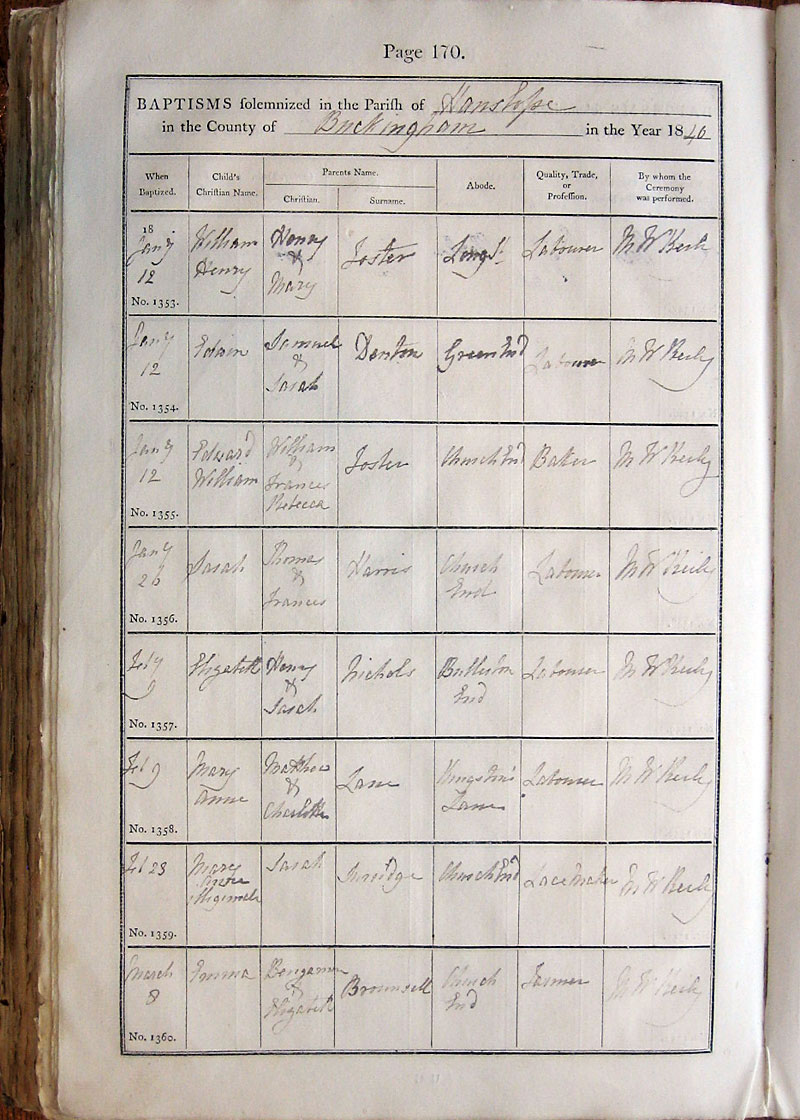 Page 170.
BAPTISMS solemnized in the Parish of Hanslope
in the County of Buckingham in the Year 1840
When Baptized.
Child's Christian Name.
Parents Name.
Christian.
Surname.
Abode.
Quality, Trade, or Profession.
By whom the Ceremony was performed.
18
Jany William Henry Foster Long St. Labourer M W Kerly
12 Henry & Mary
No. 1353.
Jany Edwin Samuel Denton Green End Labourer M W Kerly
12 & Sarah
No. 1354.
Jany Edward William Foster Church End Baker M W Kerly
12 William & Frances
Rebecca
No. 1355.
Jany Sarah Thomas Harris Church Labourer M W Kerly
26 & Frances End
No. 1356.
Feby Elizabeth Henry Nichols Bullington Labourer M W Kerly
9 & Sarah End
No. 1357.
Feb 9 Mary Matthew Lane Kingston's Labourer M W Kerly
Anne & Charlotte Lane
No. 1358.
Feb 23 Mary Sarah Church End Lace Maker M W Kerly
No. 1359.
March Emma Benjamin Brownsell Church Farmer M W Kerly
8 & Elizabeth End
No. 1360.